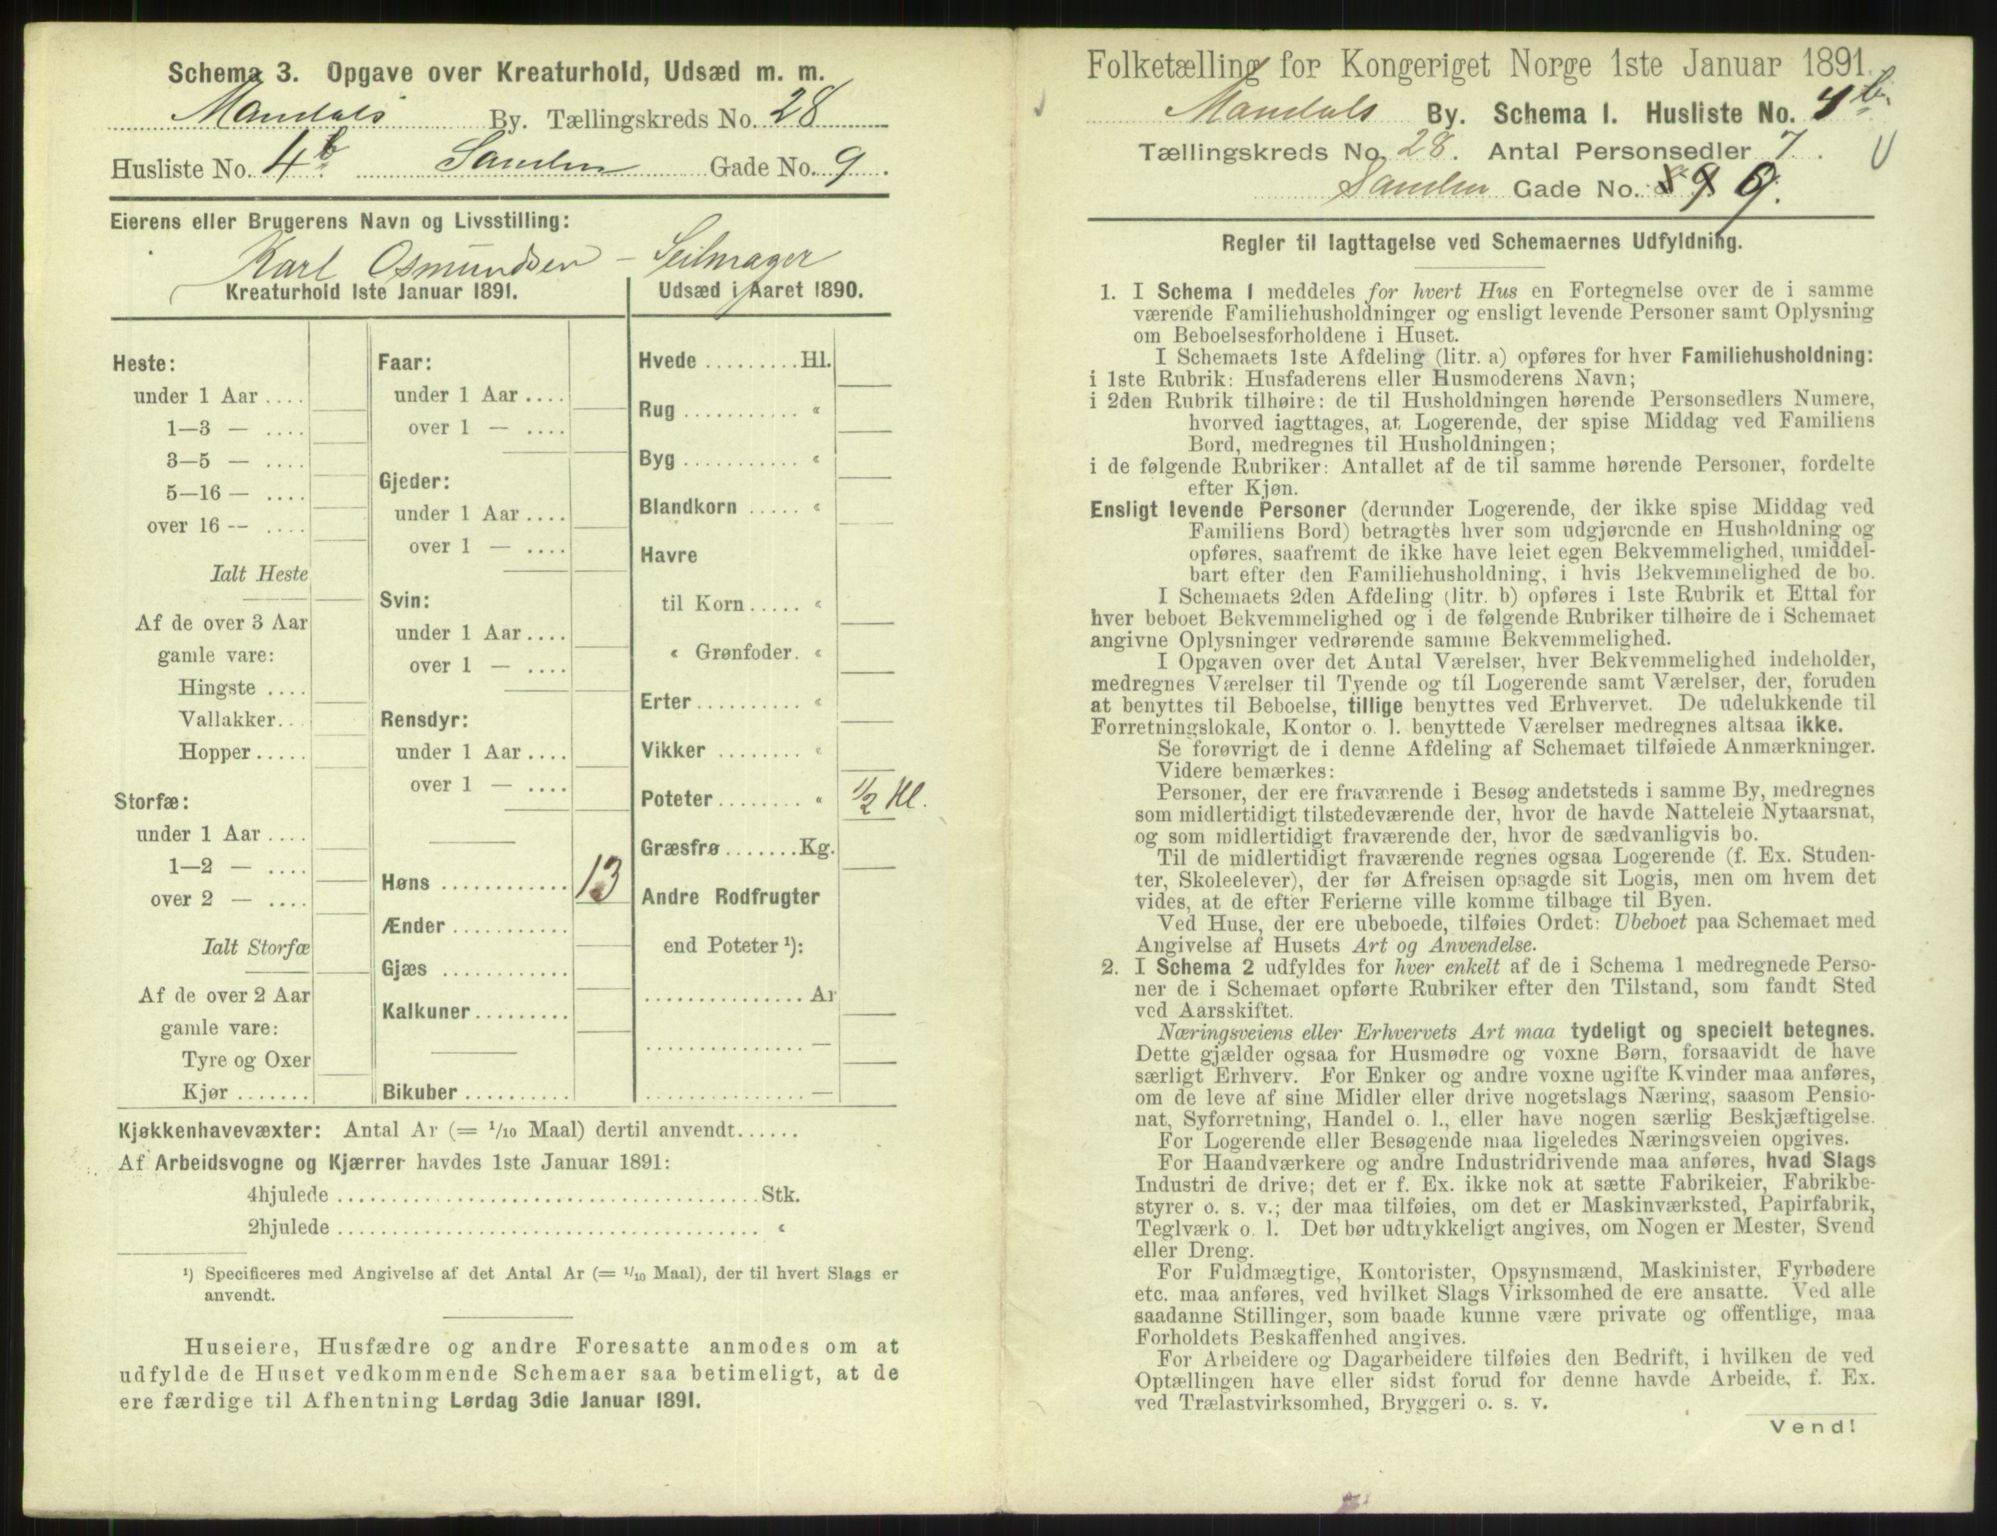 Schema 3. Opgave over Kreaturhold, Udsæd m. m.
Mandals By. Tællingskreds No. 28
Husliste No. 4b Sanden Gade No. 9.
Eierens eller Brugerens Navn og Livsstilling:
Karl Osmundsen – Seilmager
Kreaturhold 1ste Januar 1891.
Heste:
under 1 Aar ....
1—3 — ....
3—5 — ....
5—16 — ....
over 16 — ....
Ialt Heste
Af de over 3 Aar
gamle vare:
Hingste ....
Vallakker...
Hopper .....
Storfæ:
under 1 Aar ....
1—2 — ....
over 2 — ....
Ialt Storfæ
Af de over 2 Aar
gamle vare:
Tyre og Oxer
Kjør .......
Faar:
under 1 Aar ....
over 1 — ....
Gjeder:
under 1 Aar ....
over 1 — ....
Svin:
under 1 Aar ....
over 1 — ....
Rensdyr:
under 1 Aar ....
over 1 — ....
Høns ............ 13
Ænder ...........
Gjæs ............
Kalkuner.........
Bikuber ..........
Udsæd i Aaret 1890.
Hvede .........Hl.
Rug ........... «
Byg ........... «
Blandkorn ..... «
Havre
til Korn ..... «
« Grønfoder. «
Erter .......... «
Vikker ........ «
Poteter ........ « 1/2 Hl.
Græsfrø .......Kg.
Andre Rodfrugter
end Poteter ¹):
............... Ar
............... —
............... —
Kjøkkenhavevæxter: Antal Ar (= 1/10 Maal) dertil anvendt......
Af Arbeidsvogne og Kjærrer havdes 1ste Januar 1891:
4hjulede ........................................ Stk.
2hjulede ........................................ «
¹) Specificeres med Angivelse af det Antal Ar (= 1/10 Maal), der til hvert Slags er
anvendt.
Huseiere, Husfædre og andre Foresatte anmodes om at
udfylde de Huset vedkommende Schemaer saa betimeligt, at de
ere færdige til Afhentning Lørdag 3die Januar 1891.
Folketælling for Kongeriget Norge 1ste Januar 1891.
Mandals By. Schema 1. Husliste No. 4b.
Tællingskreds No. 28. Antal Personsedler 7.
Sanden Gade No. 9.
Regler til Iagttagelse ved Schemaernes Udfyldning.
1. I Schema 1 meddeles for hvert Hus en Fortegnelse over de i samme
værende Familiehusholdninger og ensligt levende Personer samt Oplysning
om Beboelsesforholdene i Huset.
I Schemaets 1ste Afdeling (litr. a) opføres for hver Familiehusholdning:
i 1ste Rubrik: Husfaderens eller Husmoderens Navn;
i 2den Rubrik tilhøire: de til Husholdningen hørende Personsedlers Numere,
hvorved iagttages, at Logerende, der spise Middag ved Familiens
Bord, medregnes til Husholdningen;
i de følgende Rubriker: Antallet af de til samme hørende Personer, fordelte
efter Kjøn.
Ensligt levende Personer (derunder Logerende, der ikke spise Middag ved
Familiens Bord) betragtes hver som udgjørende en Husholdning og
opføres, saafremt de ikke have leiet egen Bekvemmelighed, umiddel-
bart efter den Familiehusholdning, i hvis Bekvemmelighed de bo.
I Schemaets 2den Afdeling (litr. b) opføres i 1ste Rubrik et Ettal for
hver beboet Bekvemmelighed og i de følgende Rubriker tilhøire de i Schemaet
angivne Oplysninger vedrørende samme Bekvemmelighed.
I Opgaven over det Antal Værelser, hver Bekvemmelighed indeholder,
medregnes Værelser til Tyende og til Logerende samt Værelser, der, foruden
at benyttes til Beboelse, tillige benyttes ved Erhvervet. De udelukkende til
Forretningslokale, Kontor o. l. benyttede Værelser medregnes altsaa ikke.
Se forøvrigt de i denne Afdeling af Schemaet tilføiede Anmærkninger.
Videre bemærkes:
Personer, der ere fraværende i Besøg andetsteds i samme By, medregnes
som midlertidigt tilstedeværende der, hvor de havde Natteleie Nytaarsnat,
og som midlertidigt fraværende der, hvor de sædvanligvis bo.
Til de midlertidigt fraværende regnes ogsaa Logerende (f. Ex. Studen-
ter, Skoleelever), der før Afreisen opsagde sit Logis, men om hvem det
vides, at de efter Ferierne ville komme tilbage til Byen.
Ved Huse, der ere ubeboede, tilføies Ordet: Ubeboet paa Schemaet med
Angivelse af Husets Art og Anvendelse.
2. I Schema 2 udfyldes for hver enkelt af de i Schema 1 medregnede Perso-
ner de i Schemaet opførte Rubriker efter den Tilstand, som fandt Sted
ved Aarsskiftet.
Næringsveiens eller Erhvervets Art maa tydeligt og specielt betegnes.
Dette gjælder ogsaa for Husmødre og voxne Børn, forsaavidt de have
særligt Erhverv. For Enker og andre voxne ugifte Kvinder maa anføres,
om de leve af sine Midler eller drive nogetslags Næring, saasom Pensio-
nat, Syforretning, Handel o. l., eller have nogen særlig Beskjæftigelse.
For Logerende eller Besøgende maa ligeledes Næringsveien opgives.
For Haandværkere og andre Industridrivende maa anføres, hvad Slags
Industri de drive; det er f. Ex. ikke nok at sætte Fabrikeier, Fabrikbe-
styrer o. s. v.; der maa tilføies, om det er Maskinværksted, Papirfabrik,
Teglværk o. l. Det bør udtrykkeligt angives, om Nogen er Mester, Svend
eller Dreng.
For Fuldmægtige, Kontorister, Opsynsmænd, Maskinister, Fyrbødere
etc. maa anføres, ved hvilket Slags Virksomhed de ere ansatte. Ved alle
saadanne Stillinger, som baade kunne være private og offentlige, maa
Forholdets Beskaffenhed angives.
For Arbeidere og Dagarbeidere tilføies den Bedrift, i hvilken de ved
Optællingen have eller sidst forud for denne havde Arbeide, f. Ex.
ved Trælastvirksomhed, Bryggeri o. s. v.
Vend!